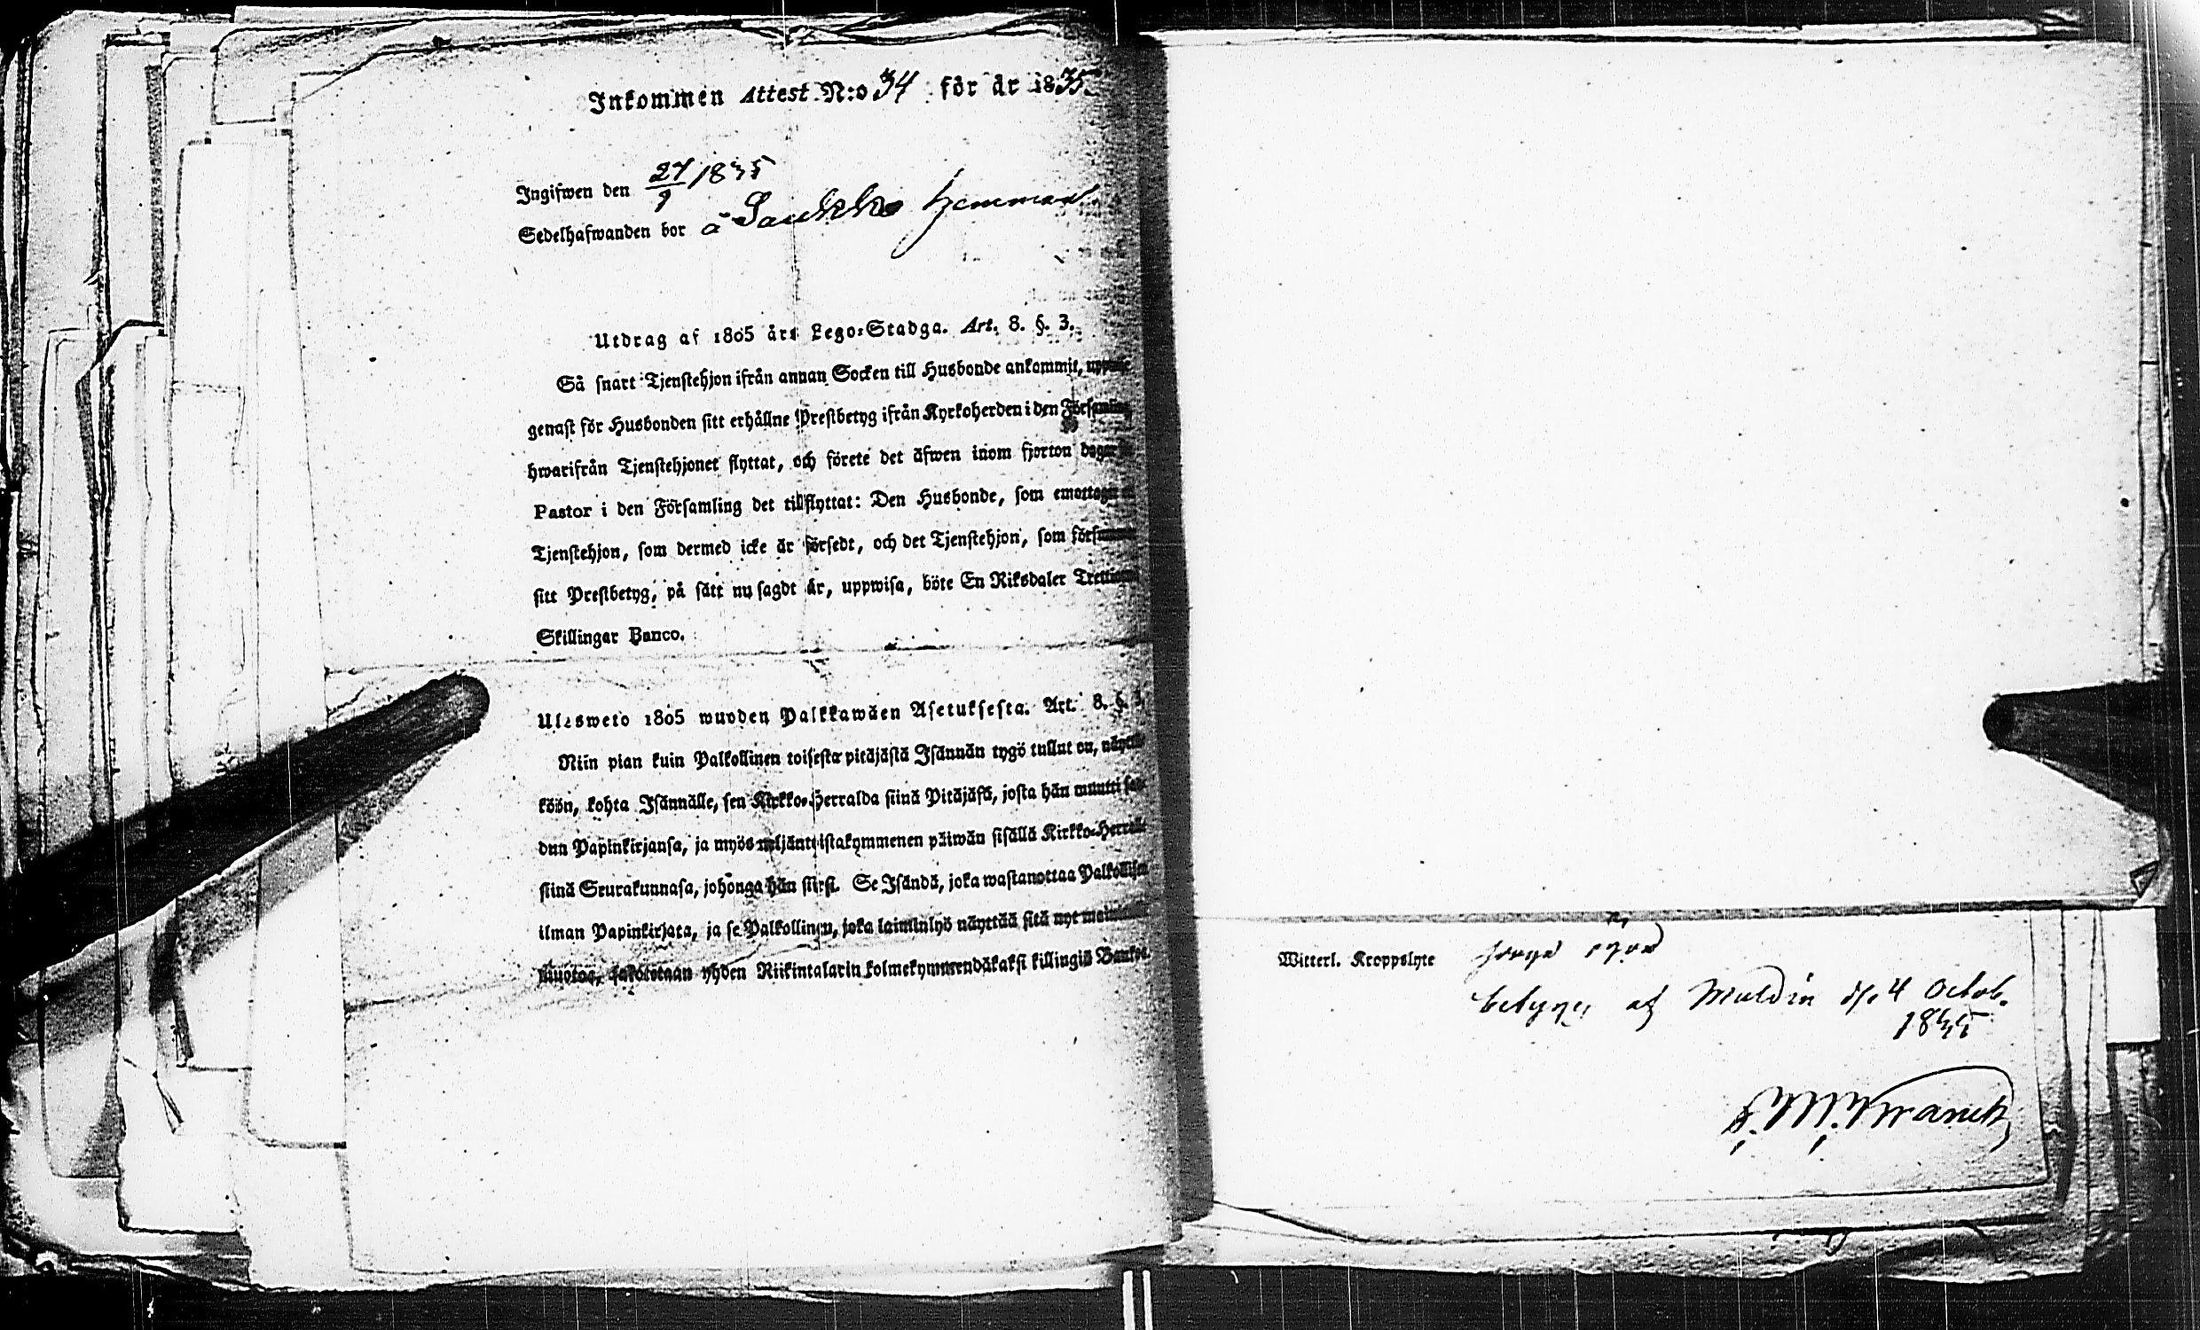 Inkommen Attest N:o 34 för år 1835.
Ingifwen den 27/9 1835
Sedelhafwanden bor å Saukko hemman.
Utdrag af 1805 års Lego-Stadga. Art. 8. §. 3.
Så snart Tjenstehjon ifrån annan Socken till Husbonde ankommit,
genast för Husbonden sitt erhållne Prestbetyg ifrån Kyrkoherden i den
hwarifrån Tjenstehjonet flyttat, och förete det äfwen inom fjorton dagar
Pastor i den Församling det tillflyttat: Den Husbonde, som
Tjenstehjon, som dermed icke är försedt, och det Tjenstehjon, som
sitt Prestbetyg, på sätt nu sagdt är, uppwisa, böte En Riksdaler
Skillingar Banco.
Ulosweto 1805 wuoden Palkkawäen Asetuksesta. Art. 8. §. 3
Niin pian kuin Palkollinen toisesta pitäjästä Isännän tygö tullut on,
köön, kohta Isännälle, sen Kirkko-Herralda siinä Pitäjäsä, josta hän muutti
dun Papinkirjansa, ja myös neljäntoistakymmenen päiwän sisällä
siinä Seurakunnasa, johonga hän siirsi. Se Isändä, joka wastanottaa
ilman Papinkirjata, ja se Palkollinen, joka laiminlyö näyttää sitä nyt
muotoa, sakotetaan yhden Riikintalarin kolmekymmendäkaksi killingiä
Witterl. Kroppslyte
betygar af Muldia d. 4 Octob.
1835